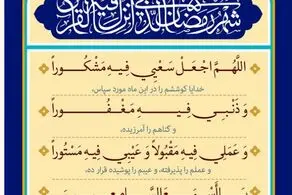 شهر رمضان الذی انزل فیه القرآن
اَللّهُمَّ اجْعَلْ سَعْیی فیهِ مَشْکُوراً
خدایا کوششم را در این ماه مورد سپاس،
وَ ذَنْبی فیهِ مَغْفُوراً
و گناهم را آمرزیده،
وَ عَمَلی فیهِ مَقْبُولاً وَ عَیْبی فیهِ مَسْتُوراً
و عملم را پذیرفته، و عیبم را پوشیده قرار ده،